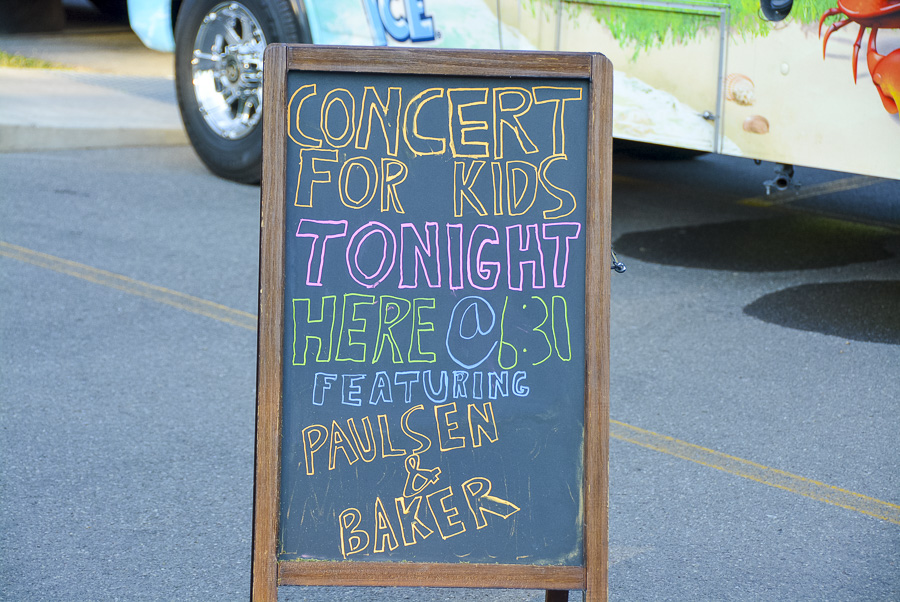 ICE
CONCERT
FOR KIDS
TONIGHT
HERE @ 6:30
FEATURING
PAULSEN
&
BAKER